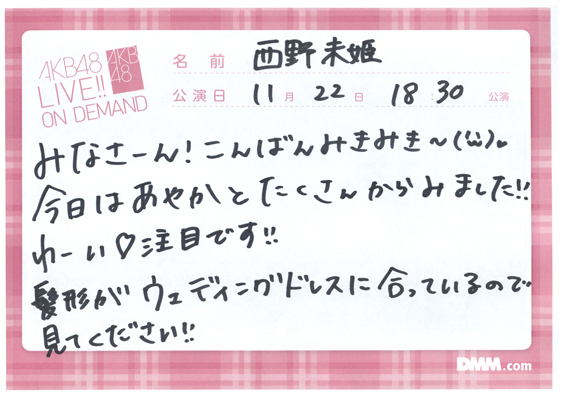 AKB48
LIVE!!
ON DEMAND
AKB
48
名前 西野未姫
公演日 11月 22日 18:30 公演
みなさーん!こんばんみきみき~(´ω`)♡
今日はあやかとたくさんからみました!!
わーい♡注目です!!
髪形がウェディングドレスに合っているので
見てください!!
DMM.com